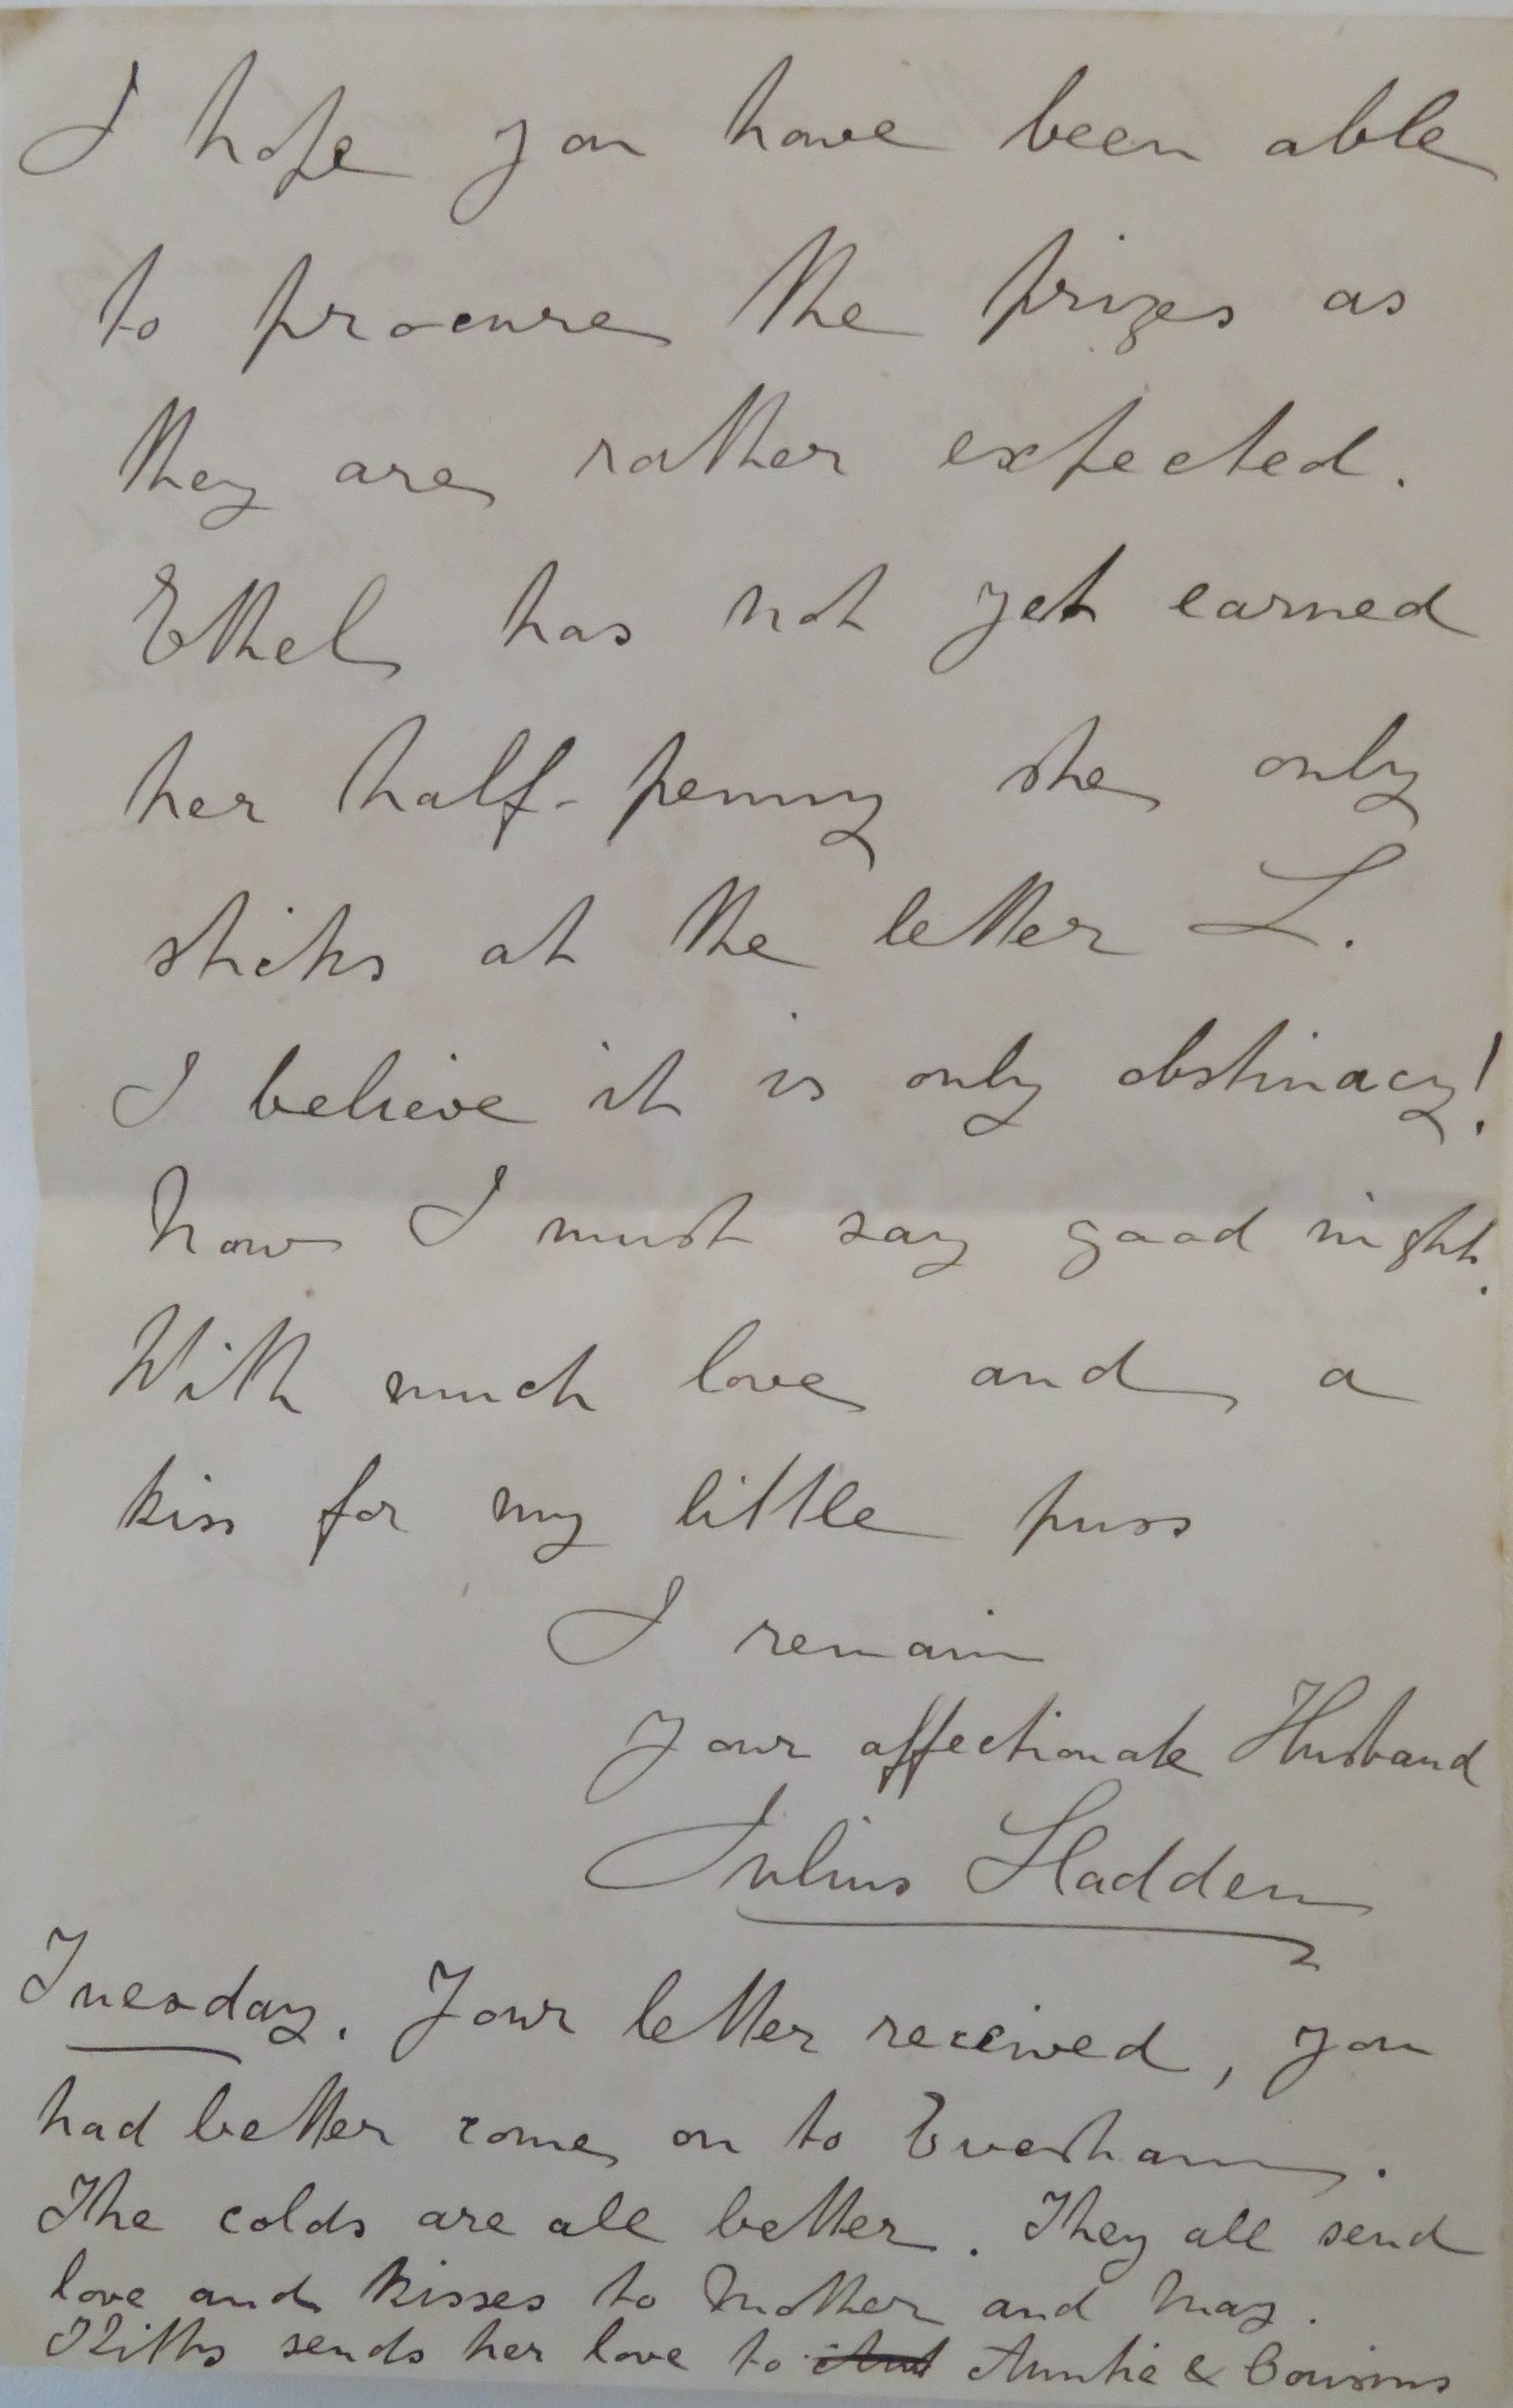 I hope you have been able
to procure the prizes as
they are rather expected.
Ethel has not yet earned
her half-penny she only
sticks at the letter L.
I believe it is only obstinacy!
Now I must say good night.
With much love and a
kiss for my little puss
I remain
Your affectionate Husband
Julius Sladden
Tuesday. Your letter received, you
had better come on to Evesham.
The colds are all better. They all send
love and kisses to Mother and May.
sends her love to Auntie & Cousins